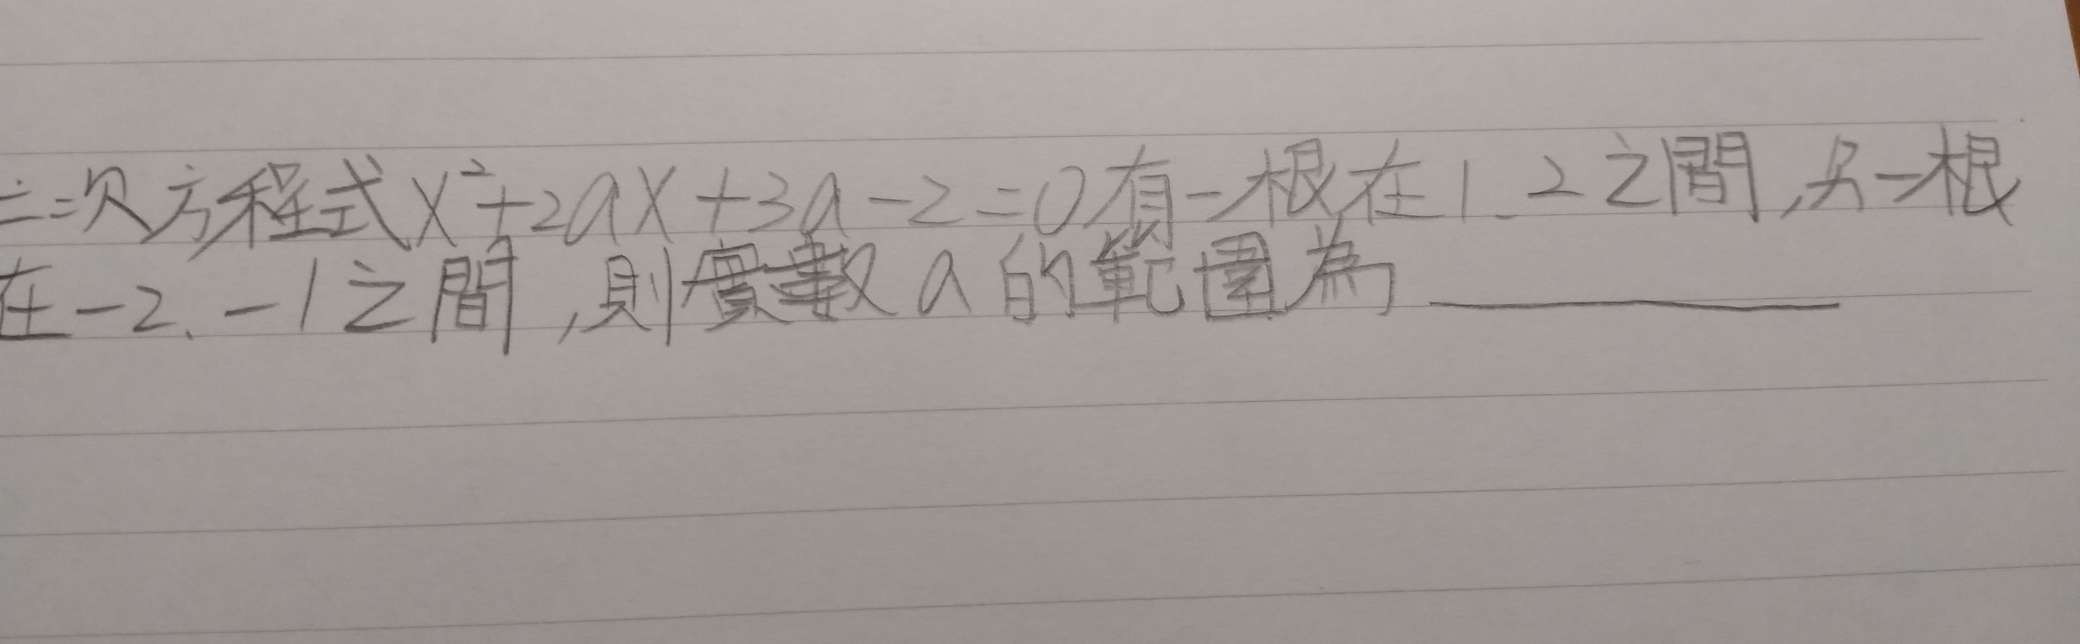 二次方程式x²+2ax+3a-2=0有一根在1、2之間,另一根
在-2、-1之間,則實數a的範圍為________